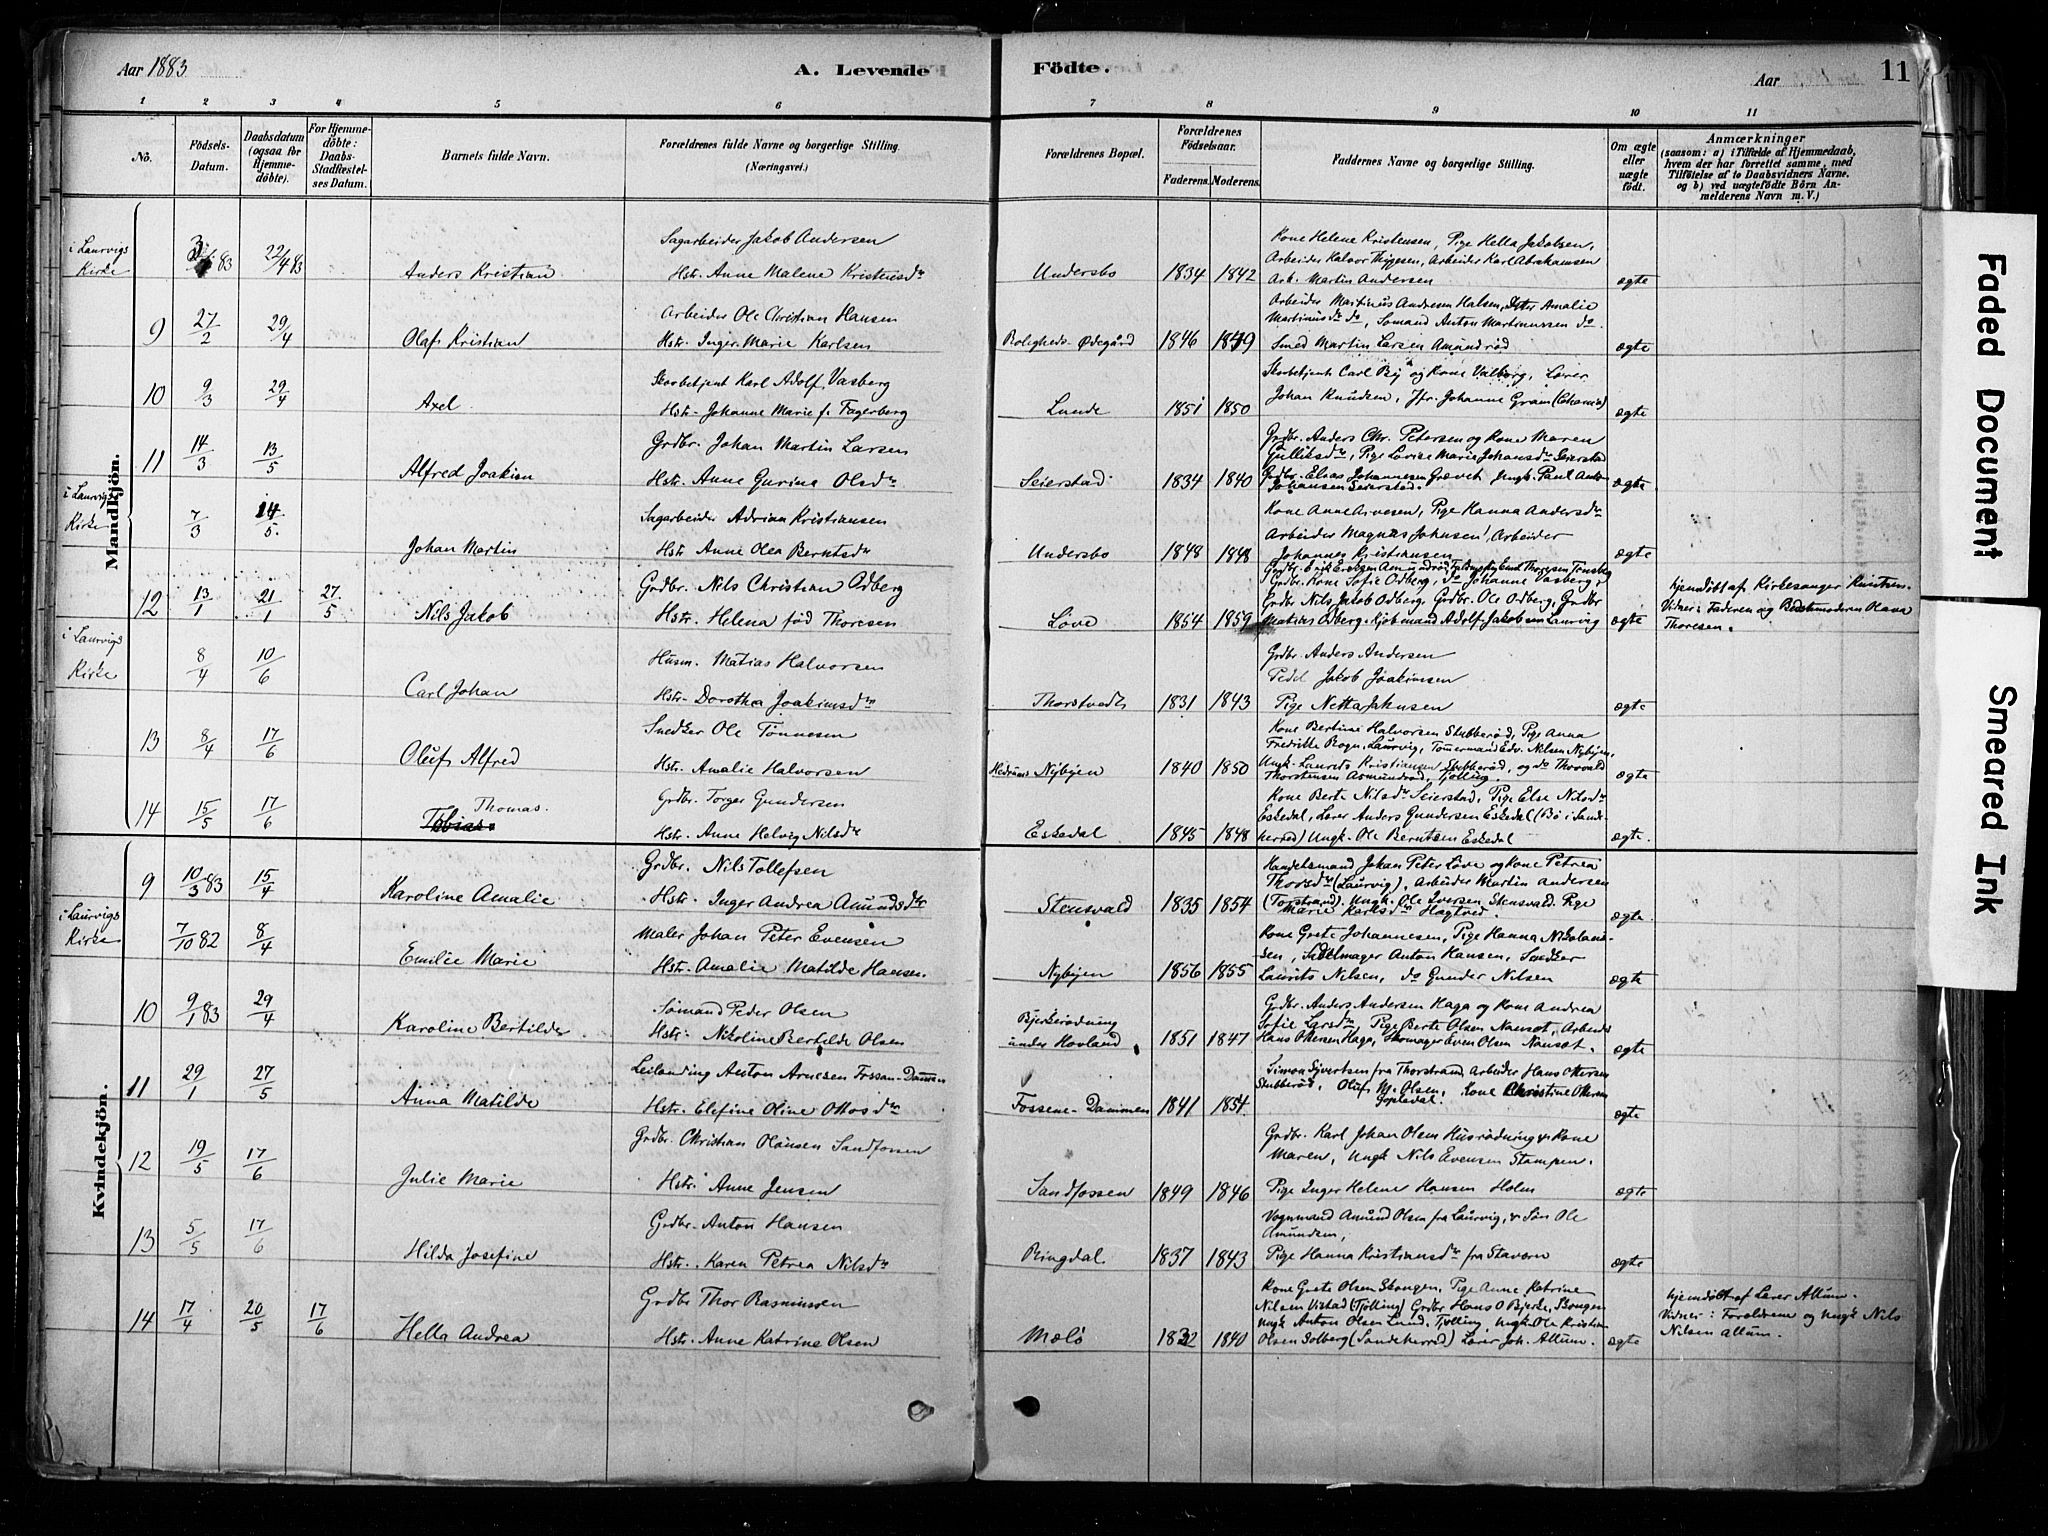 Aar 1883
A. Levende
Födte.
Aar
11
1 2 3 4 5 6 7 8 9 10 11
No.
Födsels-Datum.
Daabsdatum (ogsaa for Hjemme-döbte).
For Hjemme-döbte: Daabs-Stadfestel-ses Datum.
Barnets fulde Navn.
Forældrenes fulde Navne og borgerlige Stilling. (Næringsvei.)
Forældrenes Bopæl.
Forældrenes Födselsaar.
Faderens. Moderens.
Faddernes Navne og borgerlige Stilling.
Om ægte eller uægte födt.
Anmærkninger
(saasom: a) i Tilfælde af Hjemmedaab, hvem der har forrettet samme, med Tilföielse af to Daabsvidners Navne. og b) ved uægtefödte Börn An-melderens Navn m. V.)
Mandkjön.
i Laurvigs Kirke 83 22/4 83 Anders Kristian
Sagarbeider Jakob Andersen
Hstr. Anne Malene Kristensdtr
Undersbo 1834 1842
Kone Helene Kristensen, Pige Hella Jakobsen,
Arbeider Halvor Thygesen, Arbeider Karl Abrahamsen
Arb. Martin Andersen
ægte
9 27/2 29/4 Olaf Kristian
Arbeider Ole Christian Hansen
Hstr. Inger Marie Karlsen
Roligheds Ødegård 1846 1849
Arbeider Martinus Andresen Halsen, Dtter Amalie
Martinusdtr do, Sømand Anton Martinussen do.
Smed Martin Larsen Amundrød
ægte
10 9/3 29/4 Axel
Skovbetjent Karl Adolf Vasberg
Hstr. Johanne Marie f. Fagerberg
Lunde 1851 1850
Skovbetjent Carl Bej og Kone Valborg, Lærer
Johan Knudsen, Jfr. Johanne Gram
ægte
11 14/3 13/5 Alfred Joakim
Grdbr. Johan Martin Larsen
Hstr. Anne Gurina Olsdtr
Seierstad 1834 1840
Grdbr. Anders Chr. Petersen og Kone Maren
Gulliksdtr, Pige Lovise Marie Johansdtr Seierstad
Grdbr. Elias Johannesen Grævet Ungk. Paul Anton
Johansen Seierstad.
ægte
i Laurvigs Kirke 7/3 14/5. Johan Martin
Sagarbeider Adrian Kristiansen
Hstr. Anne Olea Berntsdtr
Undersbo 1848 1848
Kone Anne Arvesen, Pige Hanna Andersdtr
Arbeider Magnus Johnsen, Arbeider
Johannes Kristiansen
ægte
12 13/1 21/1 27/5 Nils Jakob
Grdbr. Nils Christian Odberg
Hstr. Helena fød Thoresen
Løve 1854 1859
Grdbr. Kone Sofie Odberg, do Johanne Vasberg,
Grdbr Nils Jakob Odberg, Grdbr. Ole Odberg, Grdbr
Matias Odberg, Kjøbmand Adolf Jakobsen Laurvig
ægte
hjemdøbt af Kirkesanger Knutsen.
Vidner: Faderen og Bedstmoderen Olava
Thoresen.
i Laurvigs Kirke 8/4 10/6 Carl Johan
Husm. Matias Halvorsen
Hstr. Dorothea Joakimsdtr
Thorstvedt 1831 1843
Grdbr. Anders Andersen
Pedel Jakob Joakimsen
Pige Netta Johnsen
ægte
13 8/4 17/6 Oluf Alfred
Snedker Ole Tønnesen
Hstr. Amalie Halvorsen
Hedrums Nybyen 1840 1850
Kone Bertine Halvorsen Stubberød, Pige Anna
Fredrikke Bogn, Laurvig, Tømmermand Edv. Nilsen Nybyen,
Ungk. Laurits Kristiansen Stubberød, og do Thorvald
Thorstensen Asmundrød, Tjølling
ægte
14 15/5 17/6 Thomas.
Tobias.
Grdbr. Torger Gundersen
Hstr. Anne Helvig Nilsdtr
Eskedal 1845 1848
Kone Berte Nilsdtr Seierstad, Pige Else Nilsdtr
Eskedal, Lærer Anders Gundersen Eskedal (Bø i Sande-
herred) Ungk. Ole Berntsen Eskedal
ægte.
Kvindekjön.
9 10/3 83 15/4 Karoline Amalie
Grdbr. Nils Tollefsen
Hstr. Inger Andrea Amundsdtr
Stensvald 1835 1854
Handelsmand Johan Peter Løve og Kone Petrea
Thorsdtr (Laurvig), Arbeider Martin Andersen
(Torstrand). Ungk. Ole Iversen Stensvald. Pige
Marie Karlsdtr Hagtved.
ægte.
i Laurvigs Kirke 7/10 82 8/4 Emilie Marie
Maler Johan Peter Evensen
Hstr. Amalie Matilde Hansen.
Nybyen 1856 1855
Kone Grete Johannesen, Pige Hanna Nikolai-
sen, Sadelmager Anton Hansen, Snedker
Laurits Nilsen, do Gunder Nilsen
ægte
10 9/1 83 29/4 Karoline Bertilde
Sømand Peder Olsen
Hstr. Nikoline Bertilde Olsen
Bjerkerødning
under Hovland 1851 1847
Grdbr. Anders Andersen Haga og Kone Andrea
Sofie Larsdtr, Pige Berte Olsen Nanset, Arbeider
Hans Ottersen Haga, Skomager Even Olsen Nanset.
ægte
11 29/1 27/5 Anna Matilde
Leilænding Anton Arnesen Fossan-Dammen
Hstr. Elefine Oline Ottosdtr
Fossene-Dammen 1841 1854
Simon Sivertsen fra Thorstrand, Arbeider Hans Ottersen
Stubberød, Oluf M. Olsen, Kone Christine Ottersen
ægte
12 19/5 17/6 Julie Marie
Grdbr. Christian Olaussen Sandfossen
Hstr. Anne Jensen
Sandfossen 1849 1846
Grdbr. Karl Johan Olsen Husrødning & Kone
Maren, Ungk Nils Evensen Stampen.
Pige Inger Helene Hansen Holm
ægte
13 5/5 17/6 Hilda Josefine
Grdbr. Anton Hansen
Hstr. Karen Petrea Nilsdtr
Ringdal 1837 1843
Vognmand Amund Olsen fra Laurvig, & Søn Ole
Amundsen,
Pige Hanna Kristiansdtr fra Stavern
ægte
14 17/4 20/5 17/6 Hella Andrea
Grdbr Thor Rasmussen
Hstr. Anne Katrine Olsen
Mælø 1832 1840
Kone Grete Olsen Skongen, Pige Anne Katrine
Nilsen Vistad (Tjølling) Grdbr Hans O Bjerke,
Ungk Anton Olsen Lund, Tjølling, Ungk. Ole Kristian
Olsen Solberg (Sandeherred) Lærer Joh. Allum.
ægte
hjemdøbt af Lærer Allum.
Vidner: Forældrene og Ungk Nils
Nilsen Allum.
Faded Document
Smeared Ink